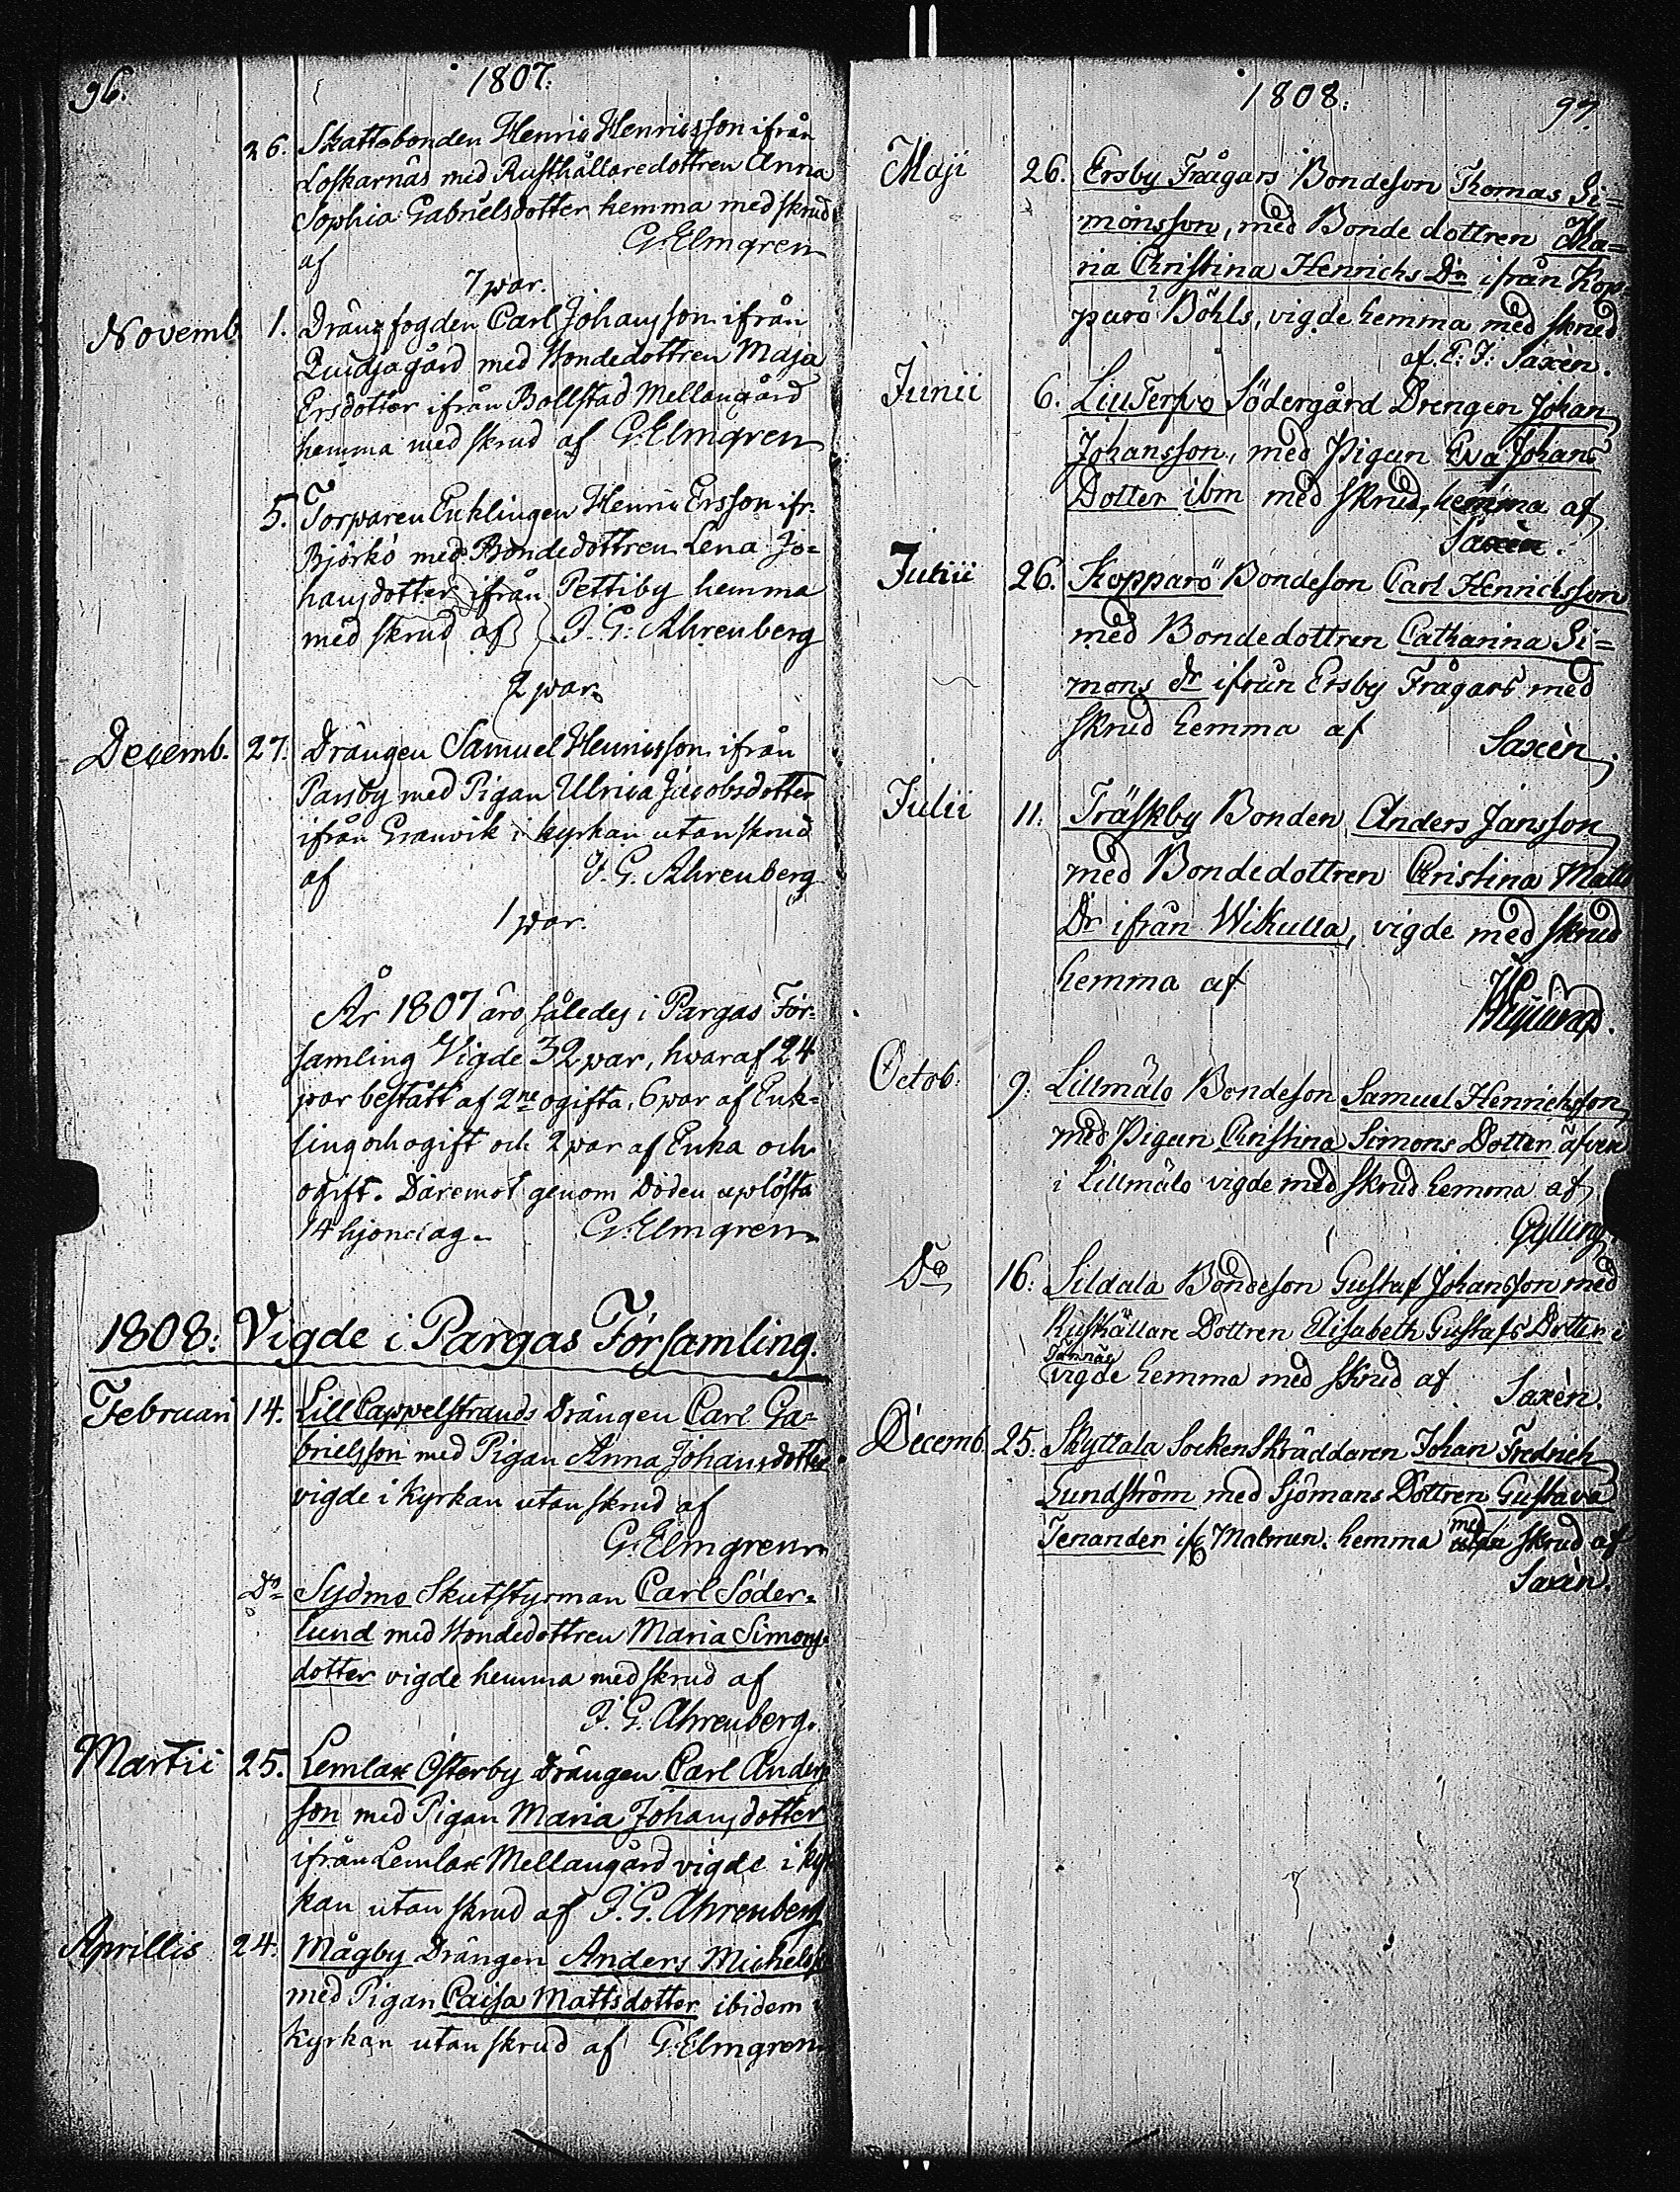 96.
1807.
26. Skattebonden Henric Henricsson ifrån
Loskarnäs med Rusthållaredottren Anna
Sophia Gabrielsdotter hemma med skrud
af G. Elmgren
7 par.
Novemb. 1. Drängfogden Carl Johansson ifrån
Qvidjagård med Bondedottren Maja
Ersdotter ifrån Bollstad Mellangård
hemma med skrud af G. Elmgren
5. Torparen Enklingen Henric Ersson ifr.
Björkö med Bondedottren Lena Jo=
hansdotter ifrån Pettiby hemma
med skrud af P. G. Ahrenberg
2 par.
Decemb. 27. Drängen Samuel Henricsson ifrån
Parsby med Pigan Ulrica Jacobsdotter
ifrån Granvik i kyrkan utan skrud
af P. G. Ahrenberg
1 par.
År 1807 äro således i Pargas För=
samling Vigde 32 par, hvaraf 24
par bestått af 2ne ogifta, 6 par af Enk=
ling och ogift och 2 par af Enka och
ogift. Däremot genom Döden uplösta
14 hjonelag. G. Elmgren
1808: Vigde i Pargas Församling.
Februari 14. Lill Cappelstrands Drängen Carl Ga=
brielsson med Pigan Anna Johansdotter
vigde i Kyrkan utan skrud af
G. Elmgren
Do Sydmo Skutstyrman Carl Söder=
lund med Bondedottren Maria Simons
dotter vigde hemma med skrud af
P. G. Ahrenberg.
Martii 25. Lemlax Österby Drängen Carl Anders
son med Pigan Maria Johansdotter
ifrån Lemlax Mellangård vigde i kyr
kan utan skrud af P. G. Ahrenberg
Aprillis 24. Mågby Drängen Anders Michelss
med Pigan Caisa Mattsdotter ibidem i
Kyrkan utan skrud af G. Elmgren
1808.
97.
Maji 26. Ersby Frågars Bondeson Thomas Si=
monsson, med Bonde dottren Ma=
ria Christina Henrichs Dr ifrån Kop=
parö Böhls, vigde hemma med skrud
af E. J. Saxén.
Junii 6. Lill Tervo Södergård Drengen Johan
Johansson, med Pigan Eva Johans
Dotter ibm med skrud, hemma af
Saxén.
Junii 26. Kopparö Bondeson Carl Henrichsson
med Bondedottren Catharina Si=
mons dr ifrån Ersby Frågars med
skrud hemma af Saxén.
Julii 11. Träskby Bonden Anders Jansson
med Bondedottren Christina Matts
Dr ifrån Wikulla, vigde med skrud
hemma af
Octob: 9. Lillmälö Bondeson Samuel Henrichsson,
med Pigan Christina Simons Dotter äfven
i Lillmälö vigde med skrud hemma af
Gylling
Do 16. Sildala Bondeson Gustaf Johansson med
Rusthållare Dottren Elisabeth Gustafs Dotter i
vigde hemma med skrud af Saxén.
Decemb. 25. Skyttala Sockenskräddaren Johan Fredrich
Lundström med Sjömans Dottren Gustava
Tenander ifr Malmen. hemma med skrud af
Saxén.